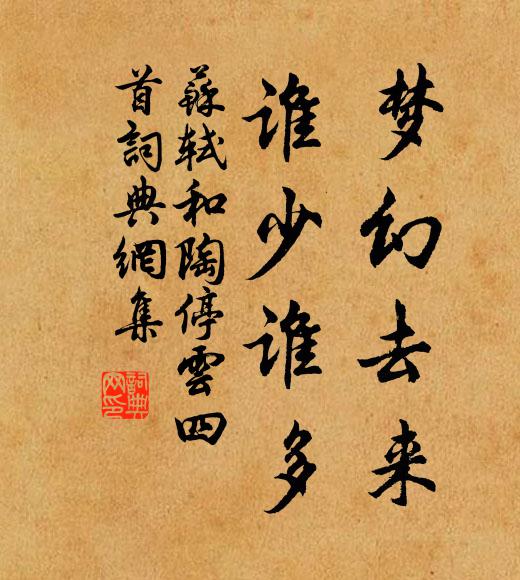 梦幻去来
谁少谁多
蘇軾和陶停雲四
首詞典網集
詞典
网印